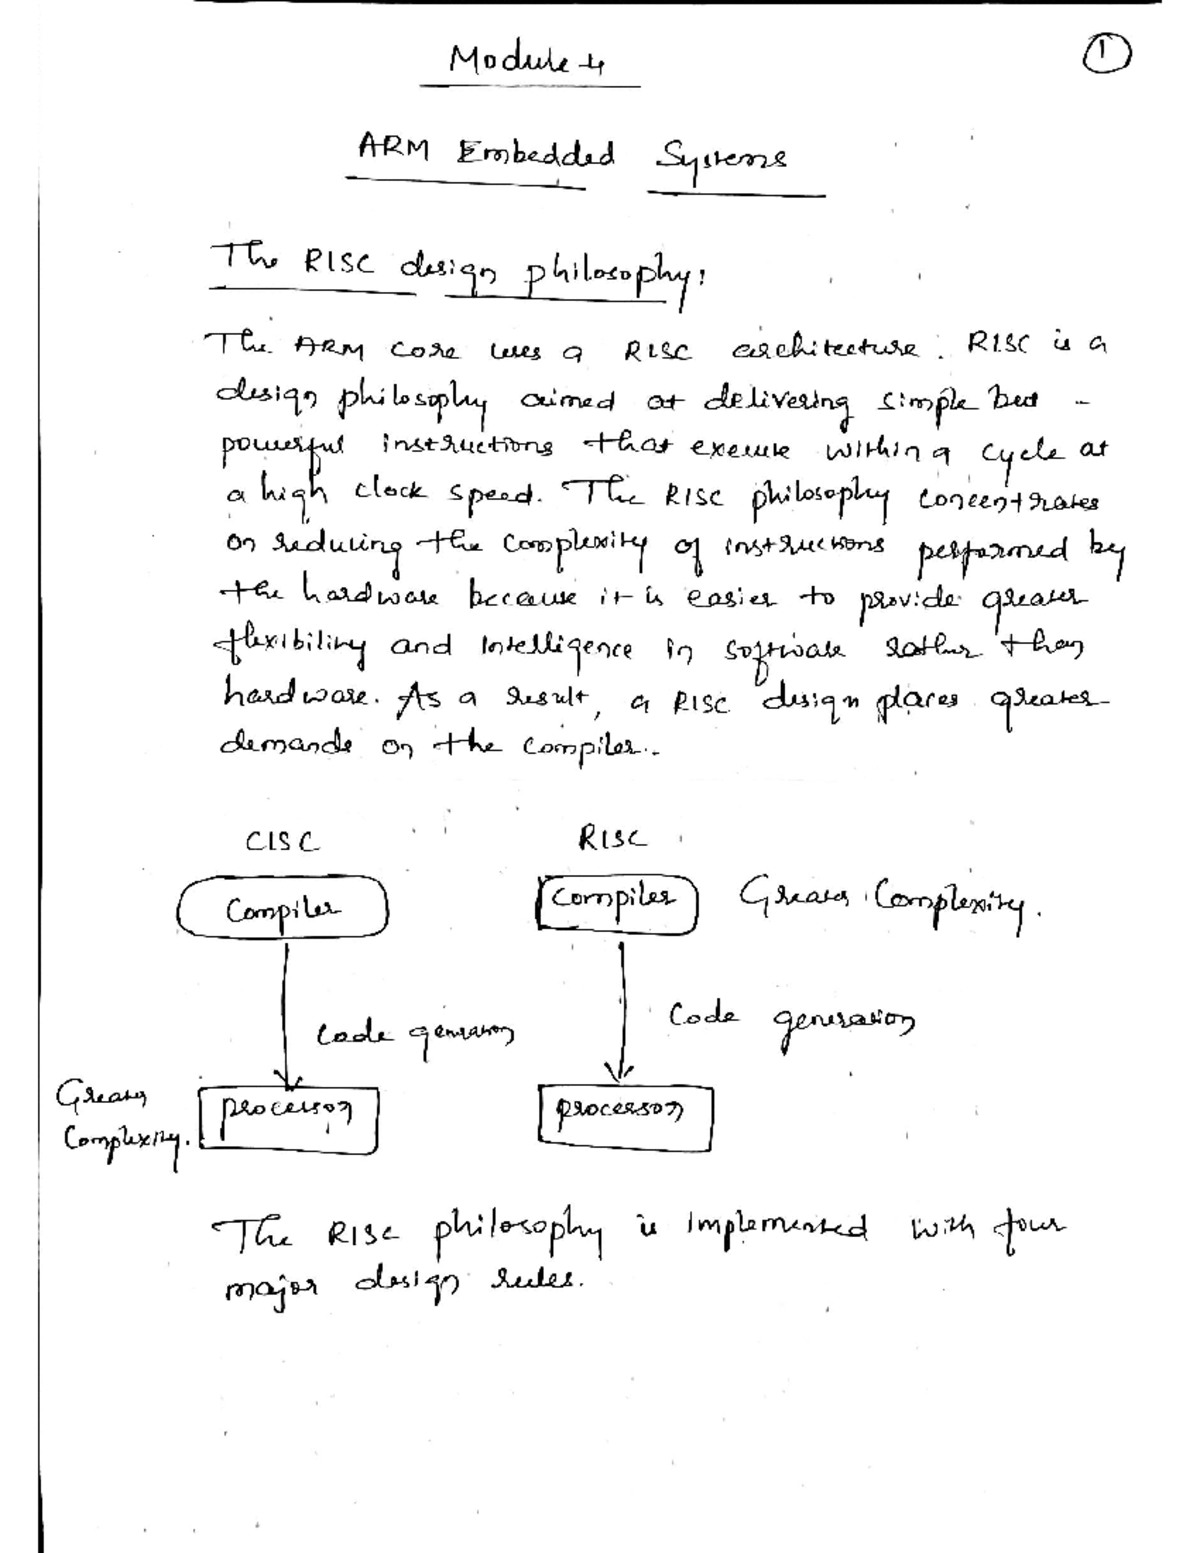 Module-4
1
ARM Embedded Systems
The RISC design philosophy:
The ARM core uses a RISC architecture. RISC is a
design philosophy aimed at delivering simple but -
powerful instructions that execute within a cycle at
a high clock speed. The RISC philosophy concentrates
on reducing the complexity of instructions performed by
the hardware because it is easier to provide greater
flexibility and intelligence in software rather than
hardware. As a result, a RISC design places greater
demands on the compiler.
CISC
RISC
Compiler
Compiler
Greater Complexity.
Code generation
Code generation
Greater
Complexity.
processor
processor
The RISC philosophy is implemented with four
major design rules.